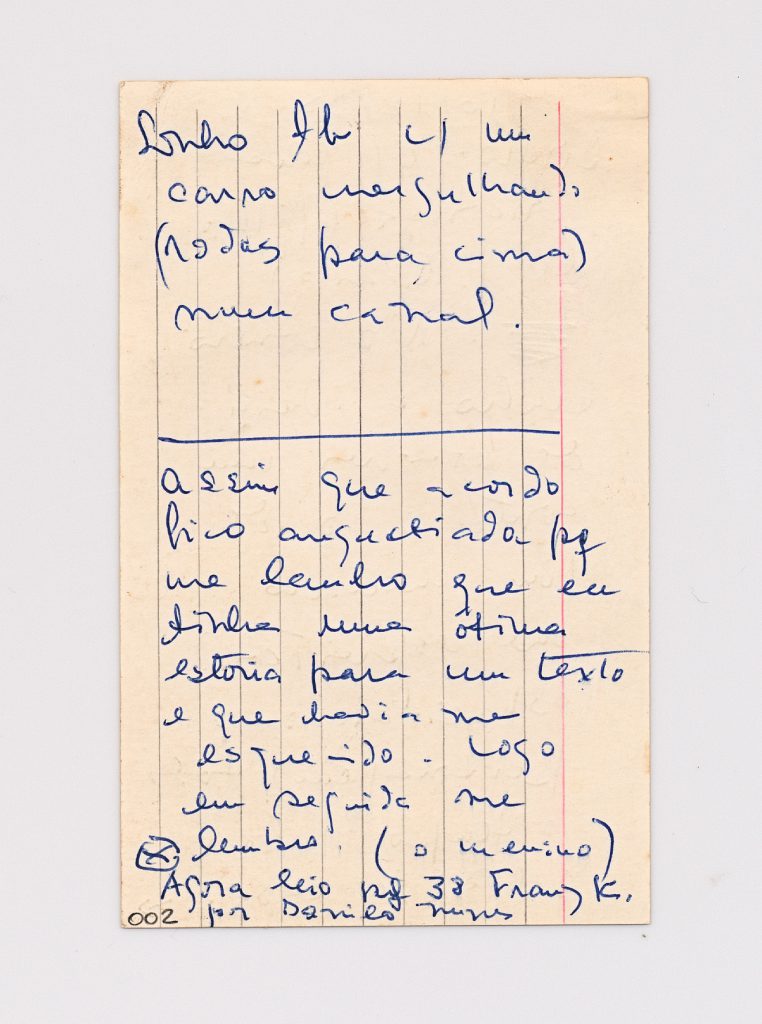 Sonho tb c/ um
carro mergulhando
(rodas para cima)
num canal.
Assim que acordo
fico angustiada pq
me lembro que eu
tinha uma ótima
estória para um texto
e que havia me
esquecido. Logo
em seguida me
lembro. (o menino)
Agora leio pg 38 Franz K.
por Danilo Nunes
002